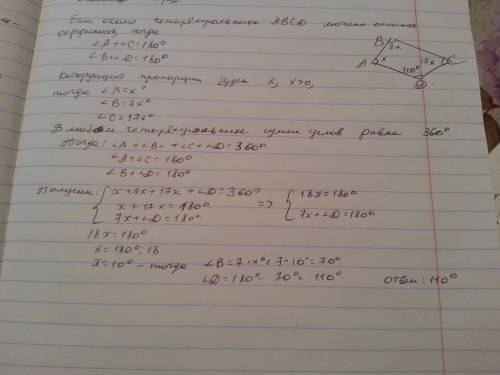 Если около четырёхугольника ABCD можно описать
окружность, тогда
∠A+∠C=180°
∠B+∠D=180°.
B 7x
A x 17x C
110°
D
Коэффициент пропорции будет x, x>0,
тогда ∠A=x°
∠B=7x°
∠C=17x°
В любом четырёхугольнике сумма углов равна 360°
Тогда: ∠A+∠B+∠C+∠D=360°
∠A+∠C=180°
∠B+∠D=180°
Получим: { x+7x+17x+∠D=360°
x+17x=180°
7x+∠D=180°
=> { 18x=180°
7x+∠D=180°
18x=180°
x=180°:18
x=10° - тогда ∠B=7·x°=7·10°=70°.
∠D=180°-70°=110°.
Ответ: 110°